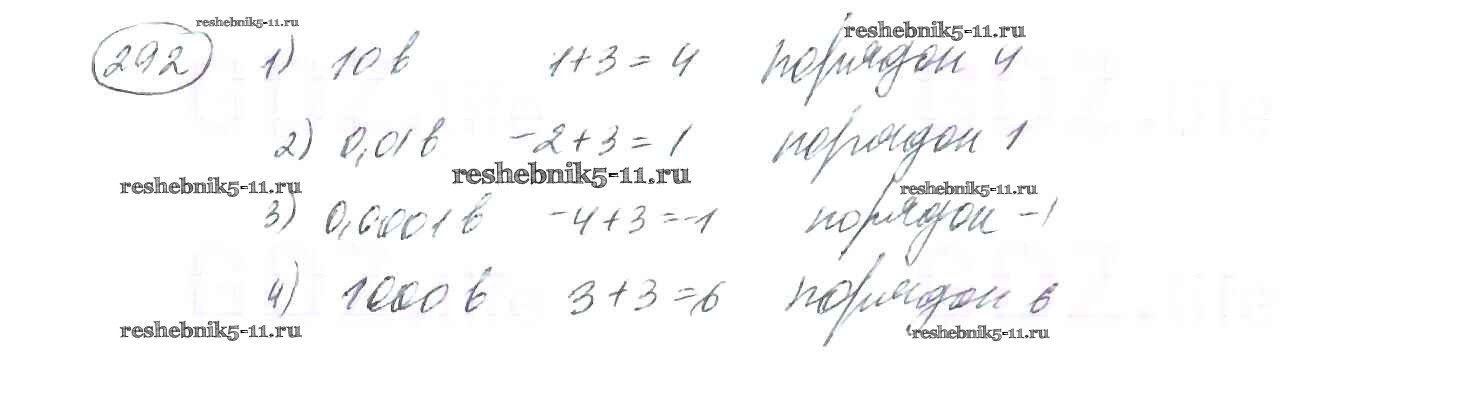 reshebnik5-11.ru
reshebnik5-11.ru
292 1) 10 в 1+3=4 порядок 4
2) 0,01 в -2+3=1 порядок 1
reshebnik5-11.ru reshebnik5-11.ru reshebnik5-11.ru
3) 0,0001 в -4+3=-1 порядок -1
4) 1000 в 3+3=6 порядок 6
reshebnik5-11.ru reshebnik5-11.ru